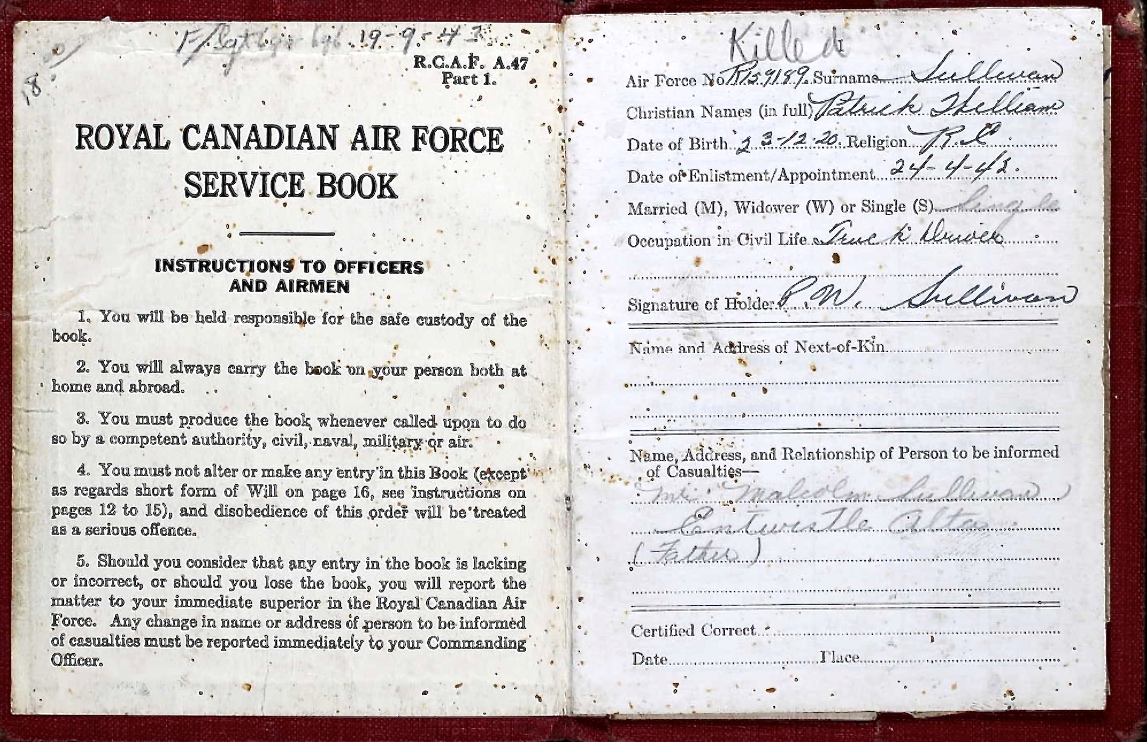 F/Sgt 19-9-43
18
R.C.A.F. A.47
Part 1.
ROYAL CANADIAN AIR FORCE
SERVICE BOOK
INSTRUCTIONS TO OFFICERS
AND AIRMEN
1. You will be held responsible for the safe custody of the
book.
2. You will always carry the book on your person both at
home and abroad.
3. You must produce the book whenever called upon to do
so by a competent authority, civil, naval, military or air.
4. You must not alter or make any entry in this Book (except
as regards short form of Will on page 16, see instructions on
pages 12 to 15), and disobedience of this order will be treated
as a serious offence.
5. Should you consider that any entry in the book is lacking
or incorrect, or should you lose the book, you will report the
matter to your immediate superior in the Royal Canadian Air
Force. Any change in name or address of person to be informed
of casualties must be reported immediately to your Commanding
Officer.
Killed
Air Force No. R159189. Surname Sullivan
Christian Names (in full) Patrick William
Date of Birth 23-12-20. Religion R.C.
Date of Enlistment/Appointment 24-4-42.
Married (M), Widower (W) or Single (S) Single
Occupation in Civil Life Truck Driver
Signature of Holder P.W. Sullivan
Name and Address of Next-of-Kin
Name, Address, and Relationship of Person to be informed
of Casualties—
Mr. Malcolm Sullivan
Entwistle Alta.
(Father)
Certified Correct
Date Place